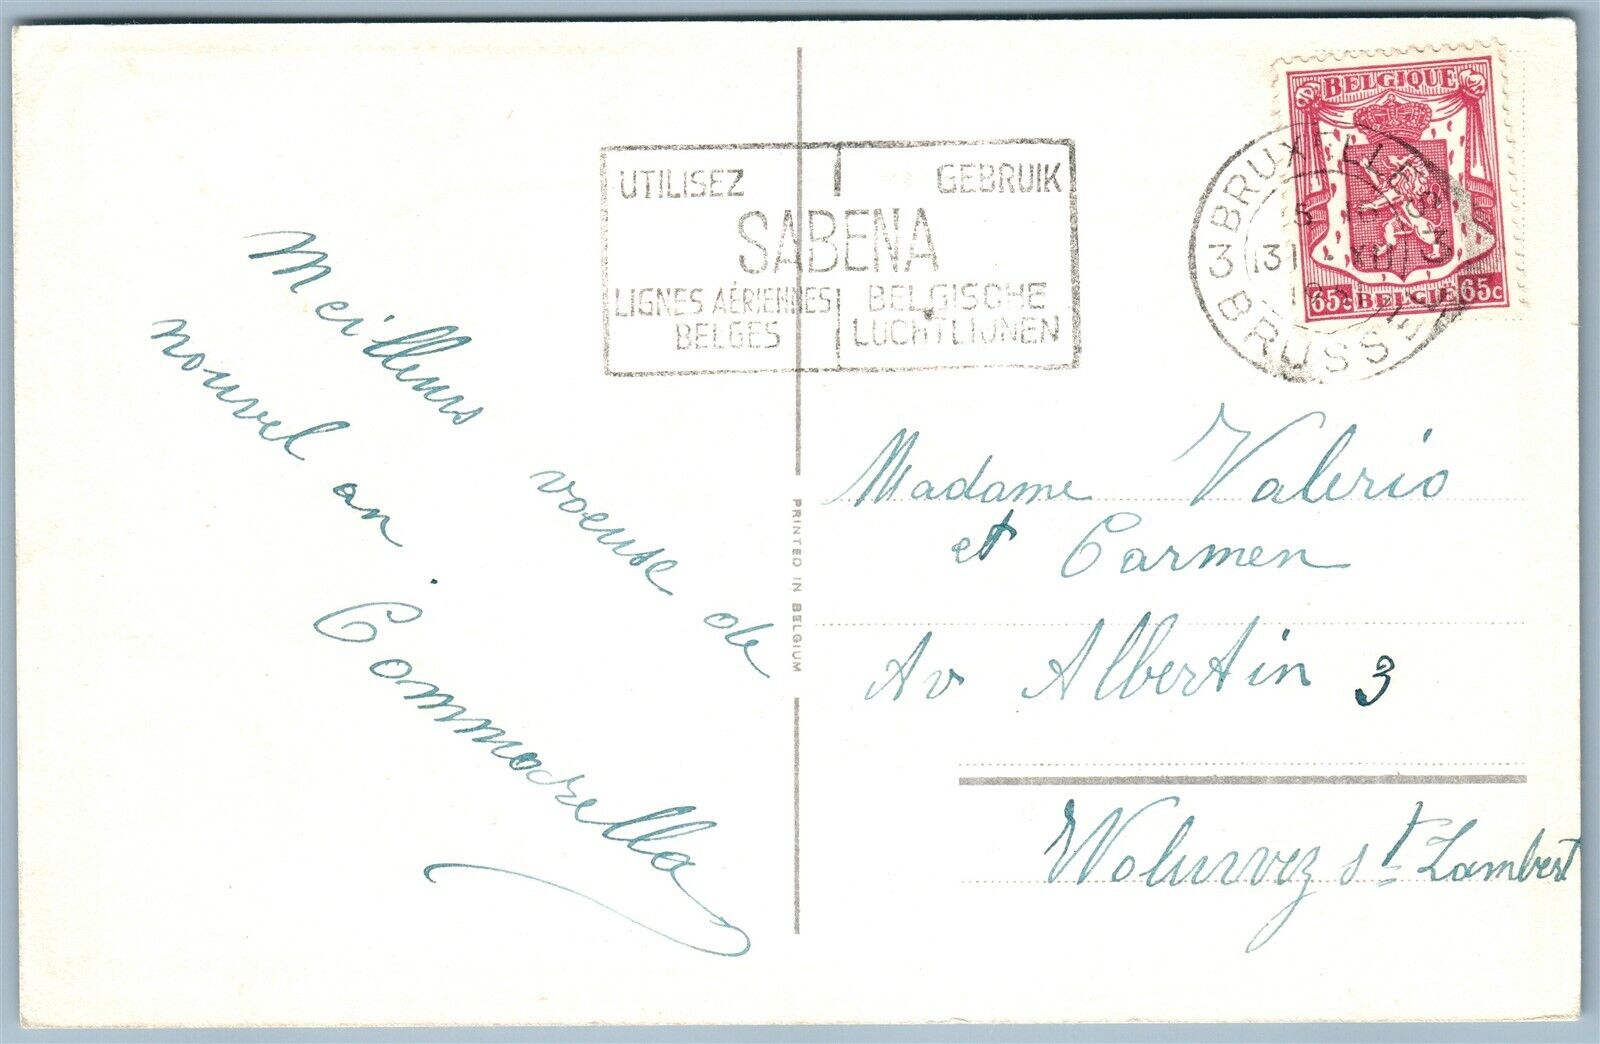 Meilleurs voeuse de
nouvel an
Commorella
PRINTED IN BELGIUM
UTILISEZ
GEBRUIK
SABENA
LIGNES AÉRIENNES
BELGES
BELGISCHE
LUCHTLIJNEN
BELGIQUE
65c BELGIE 65c
3 BRUXELLES 3
BRUSSEL
Madame Valerio
et Carmen
Av Albertin 3
Woluwez st Lambert